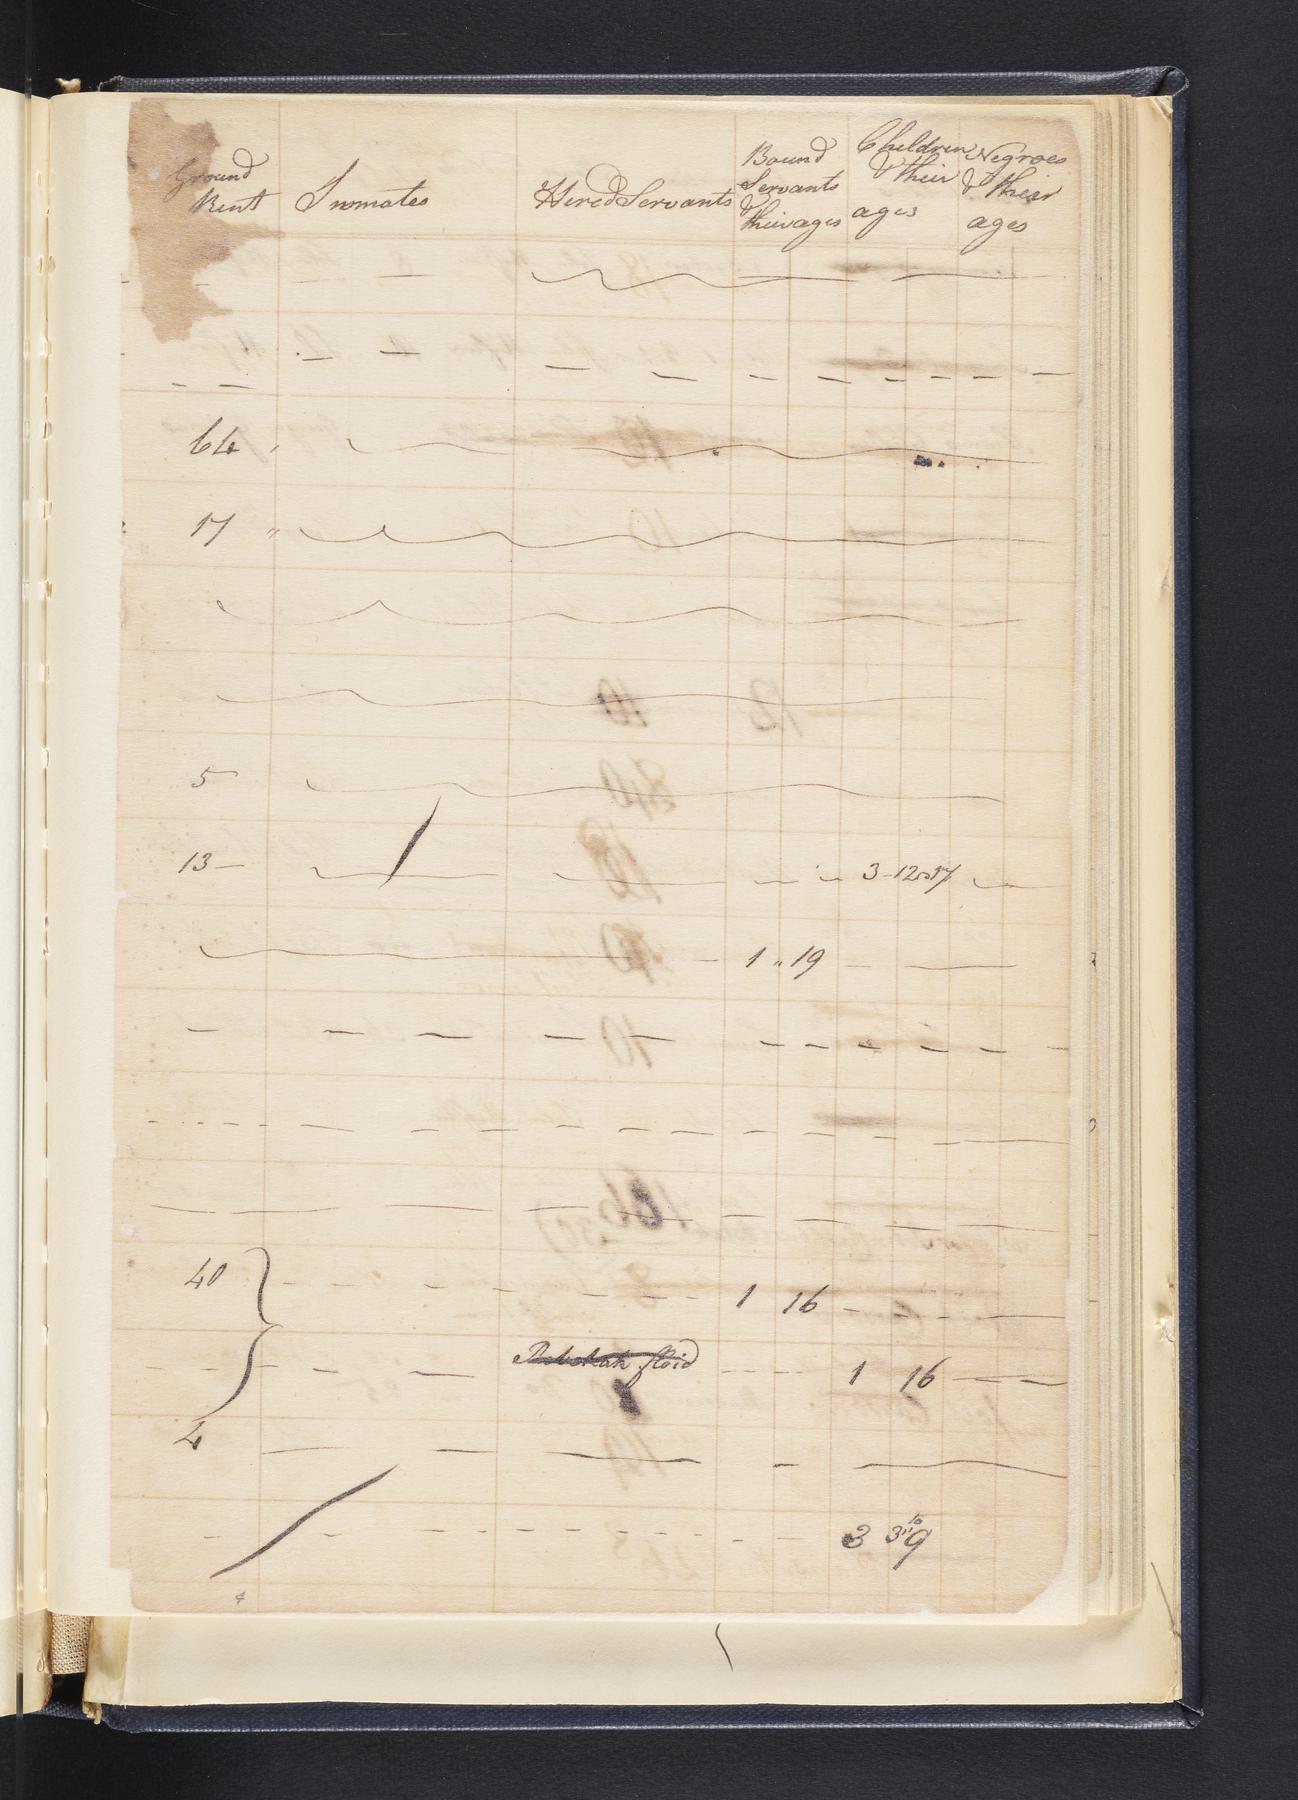 Ground Rent Inmates Hired Servants Bound Servants & their ages Children & their ages Negroes & their ages
64
17
5
13 3 - 12 17
1 " 19
40 1 16
1 16
4
3 3 10 9